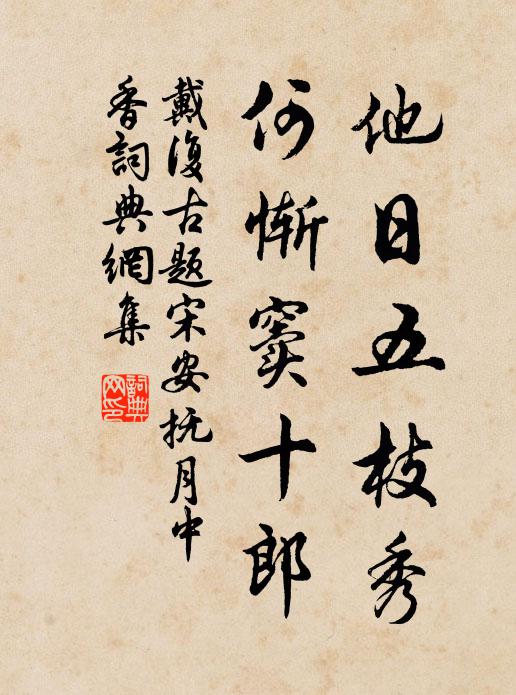 他日五枝秀
何慚窦十郎
戴復古題宋安抚月中
香詞典網集
詞典网印